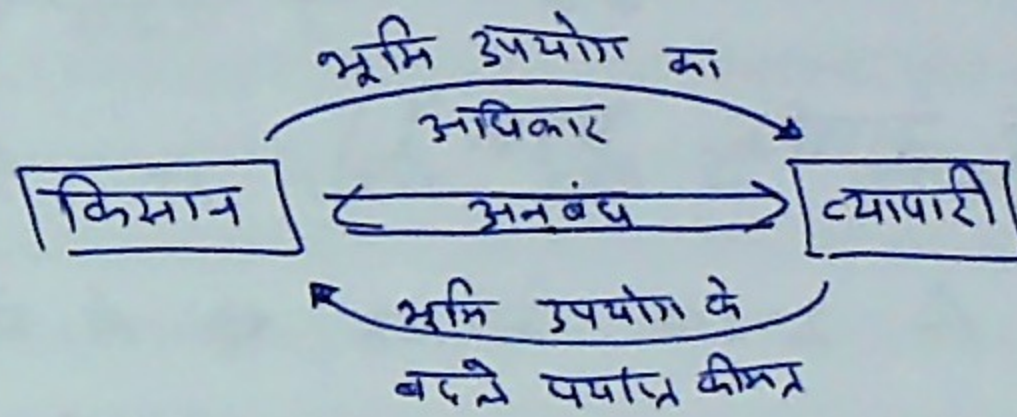 भूमि उपयोग का
अधिकार
किसान
अनबंध
व्यापारी
भूमि उपयोग के
बदले पर्याप्त कीमत